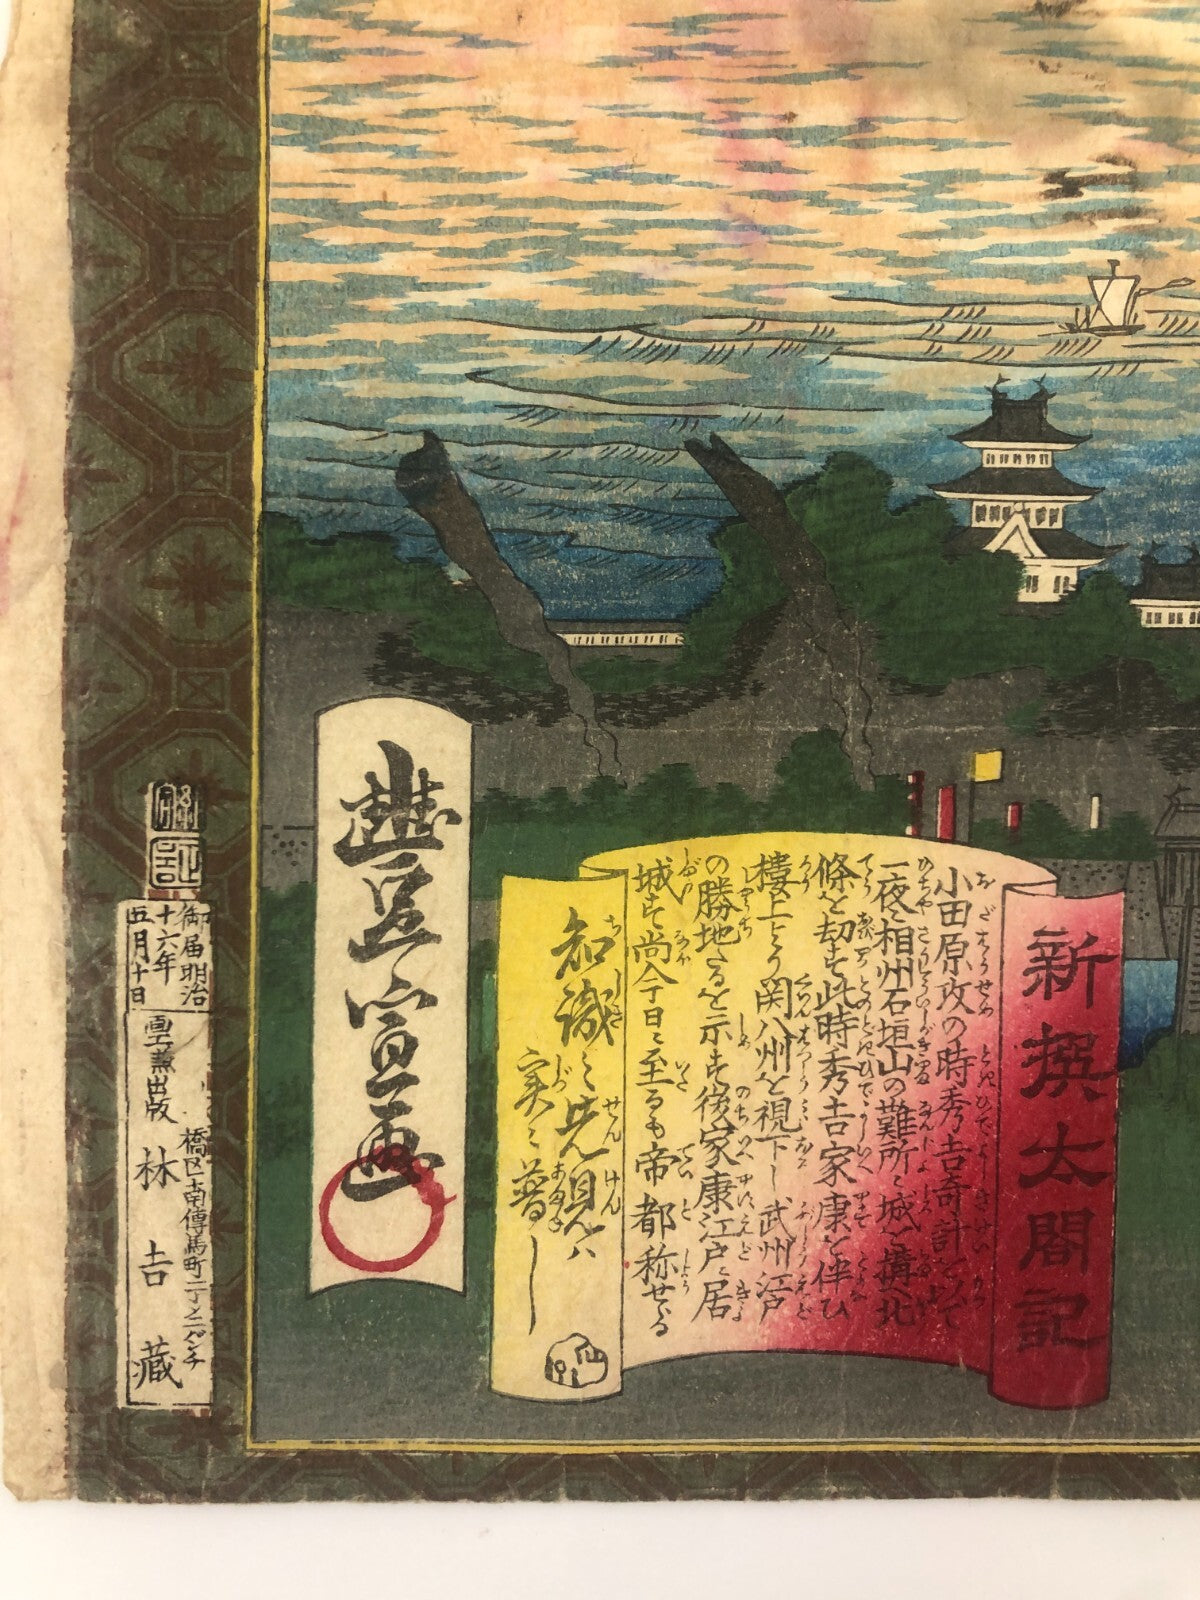 新撰太閤記
小田原攻の時秀吉奇計を以て
一夜に相州石垣山の難所に城を搆へ北
條を却す此時秀吉家康を伴ひ
樓上より関八州を視下し武州江戸
の勝地たるを示す後家康江戸に居
城す尚今日に至るも帝都称せる
知識に先見ハ
実に普し
豊宣画
御届明治
十六年
五月十日
画工兼出版
橋区南傳馬町二丁メ二バンチ
林吉藏